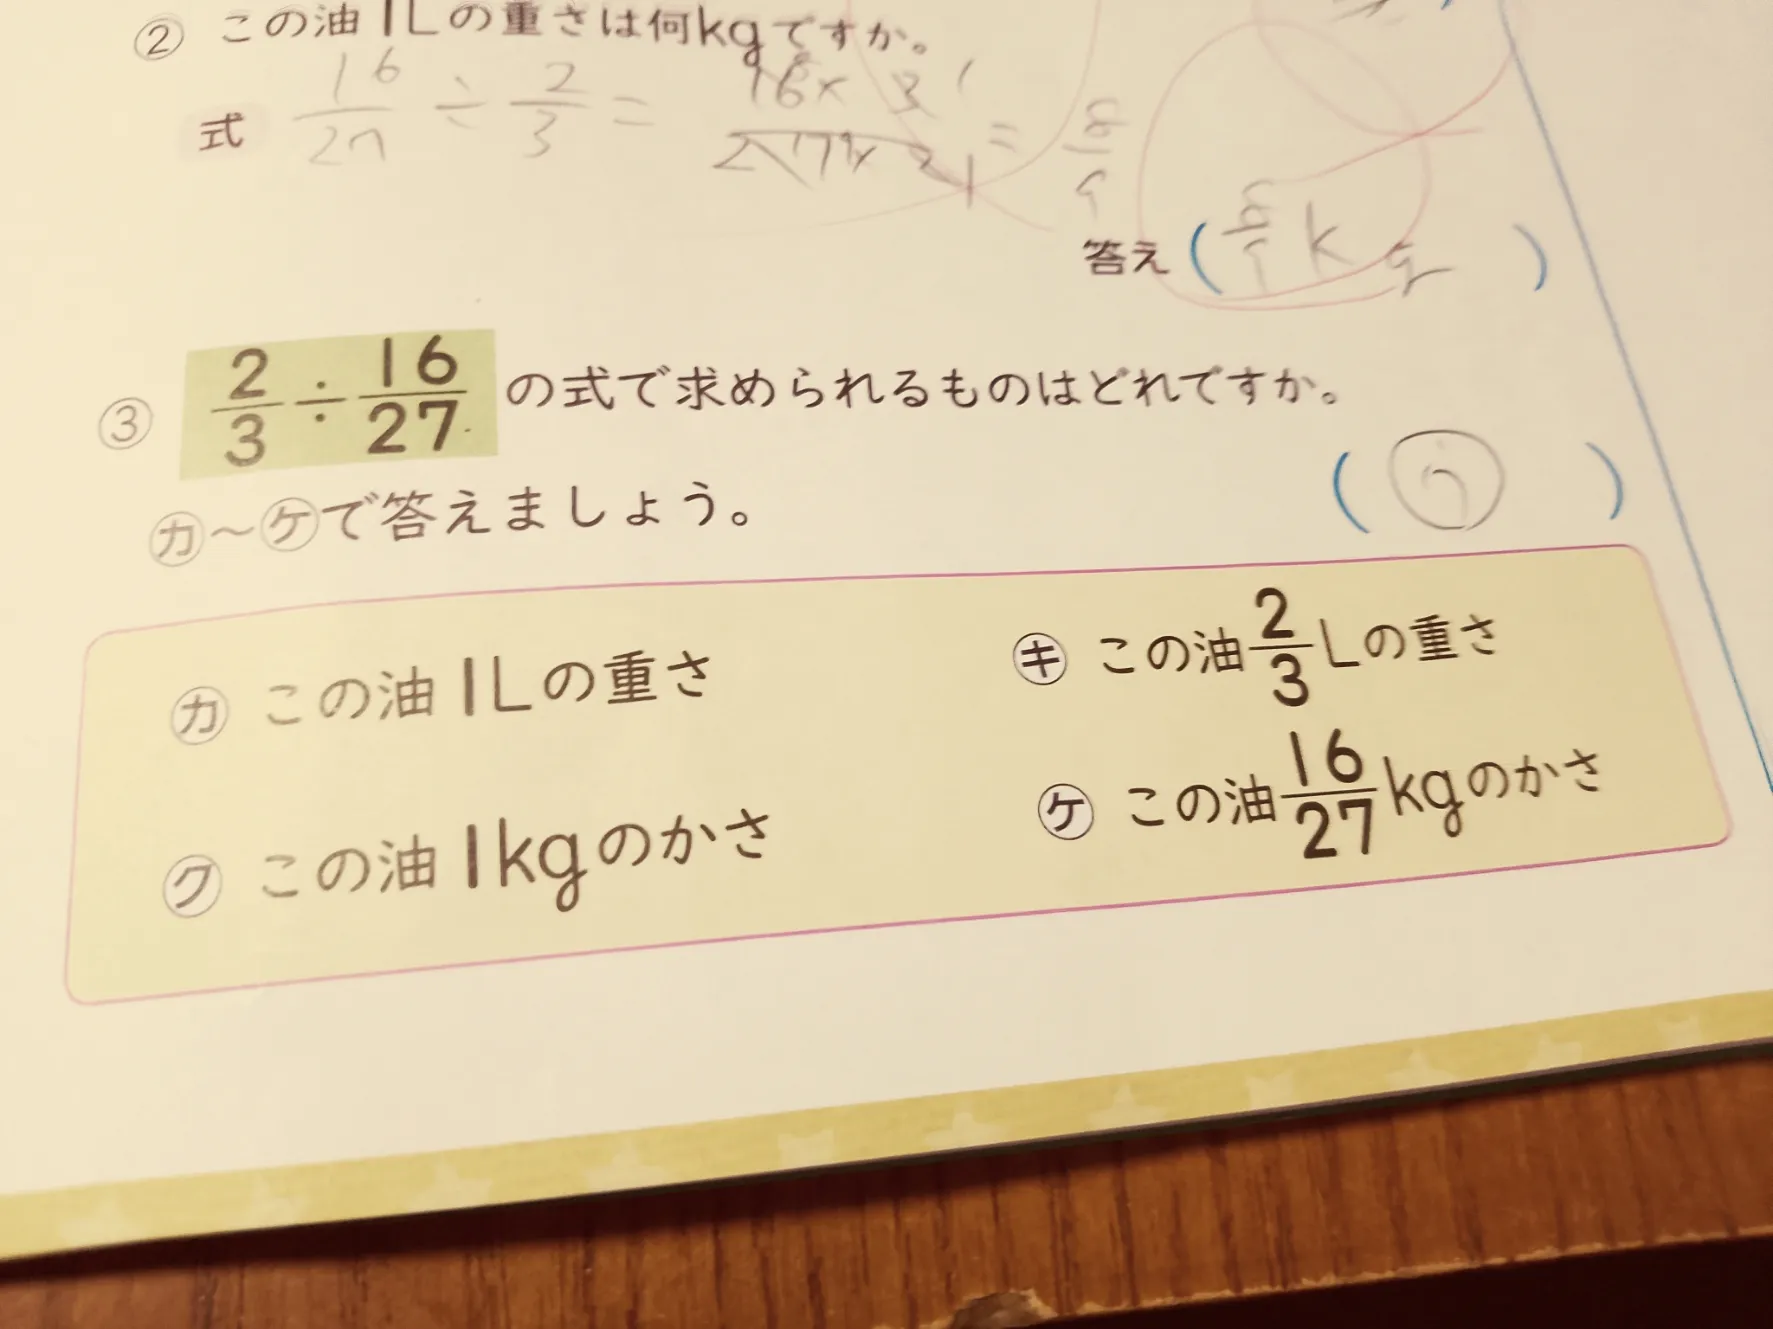 ② この油1Lの重さは何kgですか。
式 16/27 ÷ 2/3 = 16×3/27×2 = 8/9
答え ( 8/9 kg )
③ 2/3÷16/27 の式で求められるものはどれですか。
カ〜ケで答えましょう。
カ この油1Lの重さ
キ この油2/3Lの重さ
ク この油1kgのかさ
ケ この油16/27kgのかさ